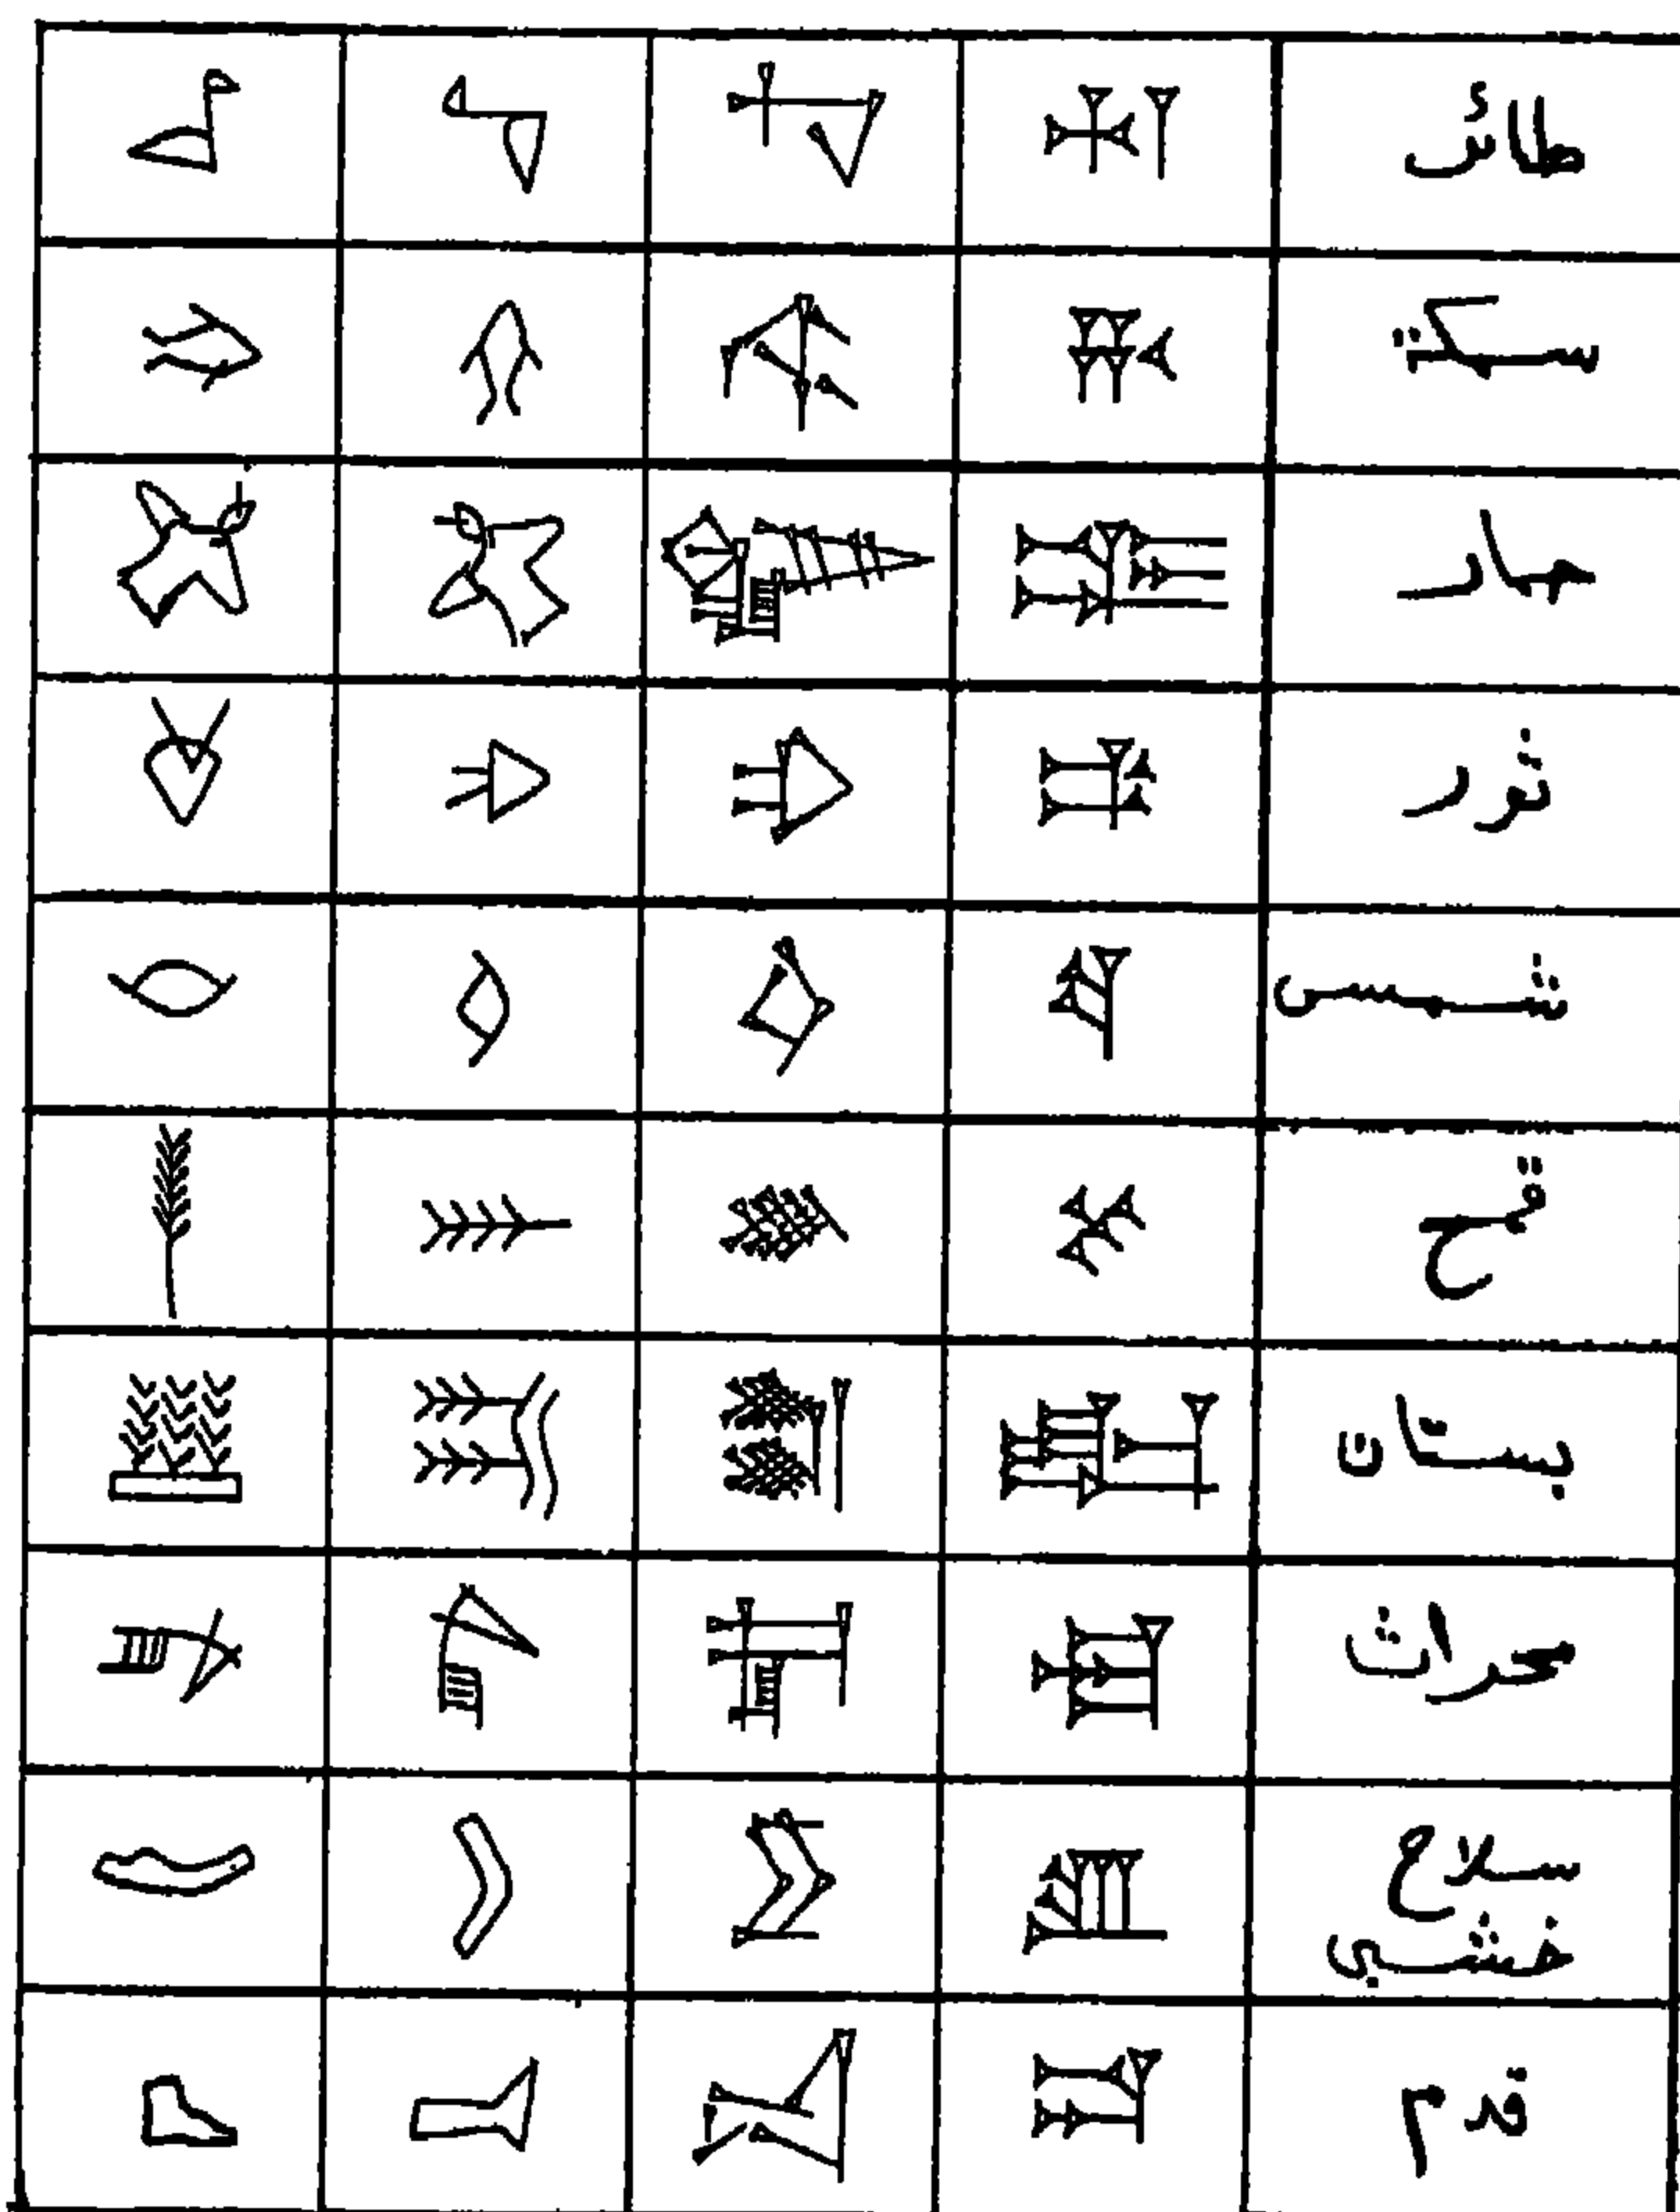 طائر
سمكة
حمار
ثور
شمس
قمح
بستان
محراث
سلاح
خشبي
قدم